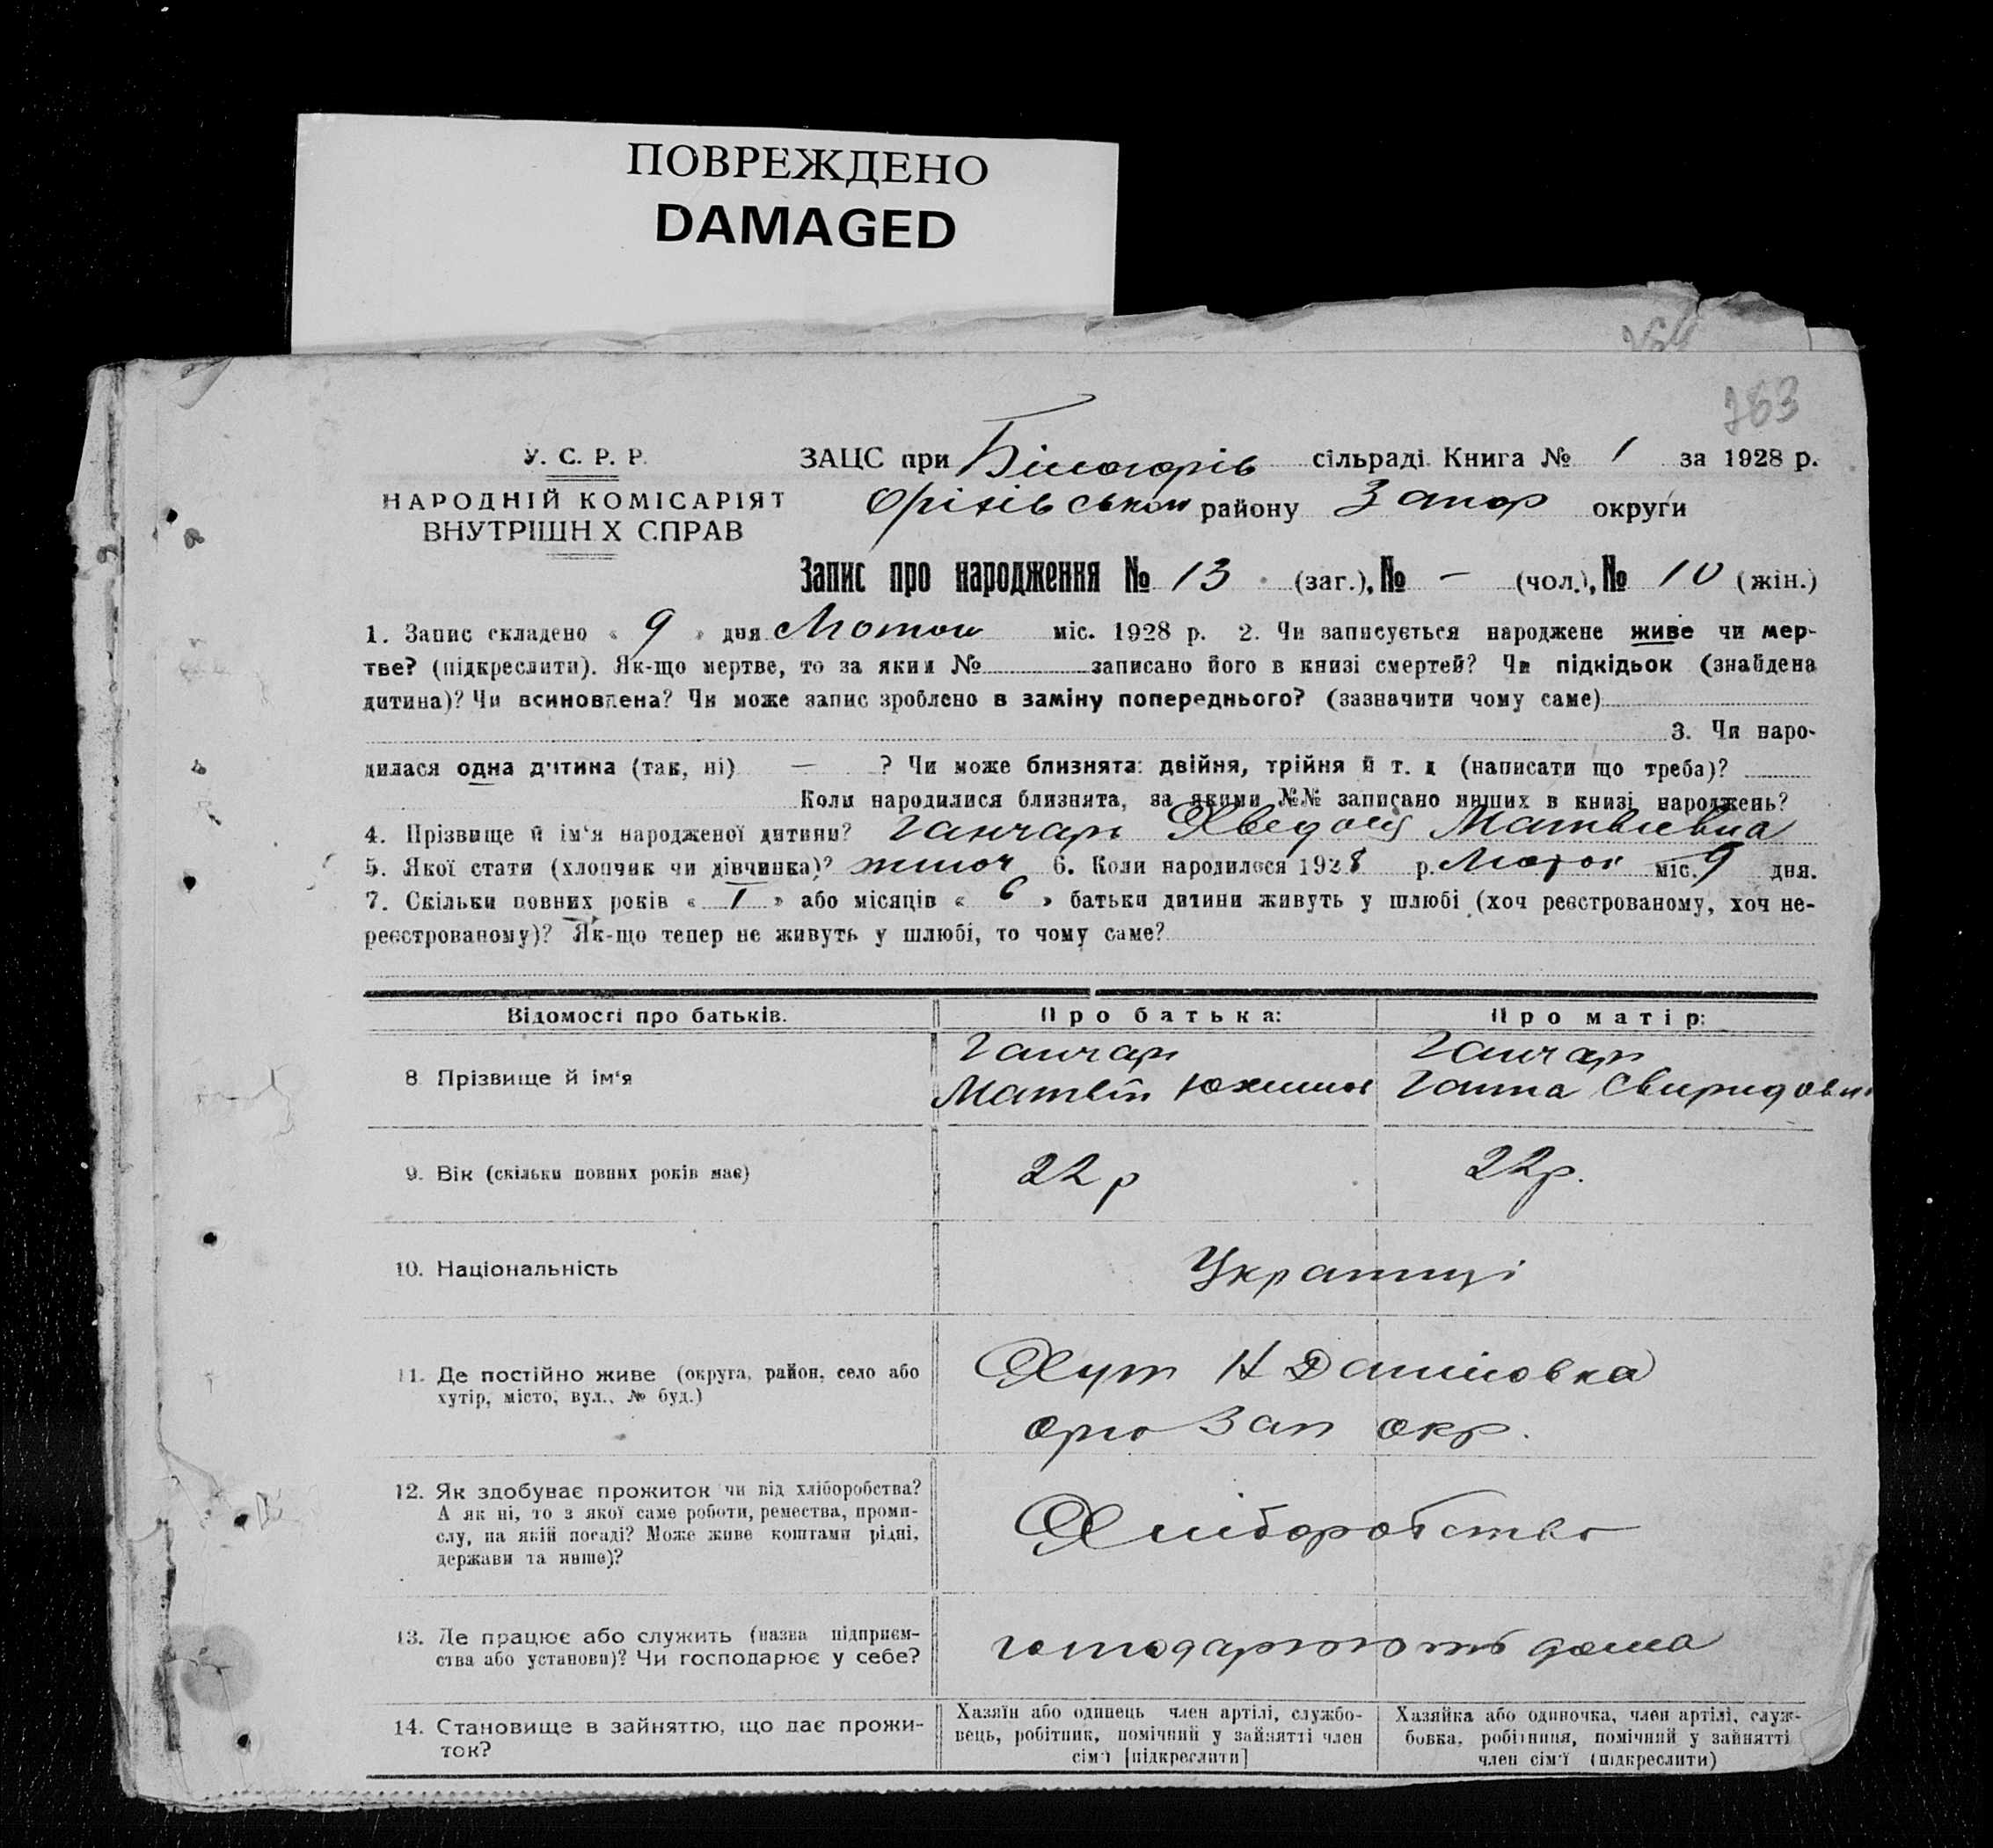 ПОВРЕЖДЕНО
DAMAGED
763
У. С. Р. Р.
НАРОДНІЙ КОМІСАРІЯТ
ВНУТРІШН Х СПРАВ
ЗАЦС при Білогорів сільраді Книга № 1 за 1928 р.
Оріхівськом району Запор округи
Запис про народження № 13 (заг.), № – (чол.), № 10 (жін.)
1. Запис складено « 9 » дня Лютого міс. 1928 р. 2. Чи записується народжене живе чи мер-
тве? (підкреслити). Як-що мертве, то за яким № записано його в книзі смертей? Чи підкідьок (знайдена
дитина)? Чи всиновлена? Чи може запис зроблено в заміну попереднього? (зазначити чому саме)
3. Чи наро-
дилася одна дитина (так, ні) — ? Чи може близнята: двійня, трійня й т. д (написати що треба)?
Коли народилися близнята, за якими №№ записано инших в книзі народжень?
4. Прізвище й ім‘я народженої дитини? Ганчарь Хведося Матвієвна
5. Якої стати (хлопчик чи дівчинка)? жіноч 6. Коли народилося 1928 р. Лютого міс. 9 дня.
7. Скільки повних років « 1 » або місяців « 6 » батьки дитини живуть у шлюбі (хоч реєстрованому, хоч не-
реєстрованому)? Як-що тепер не живуть у шлюбі, то чому саме?
Відомості про батьків.
Про батька:
Про матір:
8 Прізвище й ім‘я
Ганчарь
Матвій Юхимов
Ганчарь
Ганна Свиридовн
9. Вік (скільки повних років має)
22 р
22 р.
10. Національність
Українці
11. Де постійно живе (округа, район, село або
хутір, місто, вул., № буд.)
Хут Н Даніловка
Оріо Зап окр.
12. Як здобуває прожиток чи від хліборобства?
А як ні, то з якої саме роботи, ремества, проми-
слу, на якій посаді? Може живе коштами рідні,
держави та инше)?
Хліборобство
13. Де працює або служить (назва підприєм-
ства або установи)? Чи господарює у себе?
господарюють дома
14. Становище в зайняттю, що дає прожи-
ток?
Хазяїн або одинець член артілі, службо-
вець, робітник, помічний у зайнятті член
сім‘ї [підкреслити]
Хазяйка або одиночка, член артілі, служ-
бовка, робітниця, помічний у зайнятті
член сім‘ї (підкреслити)